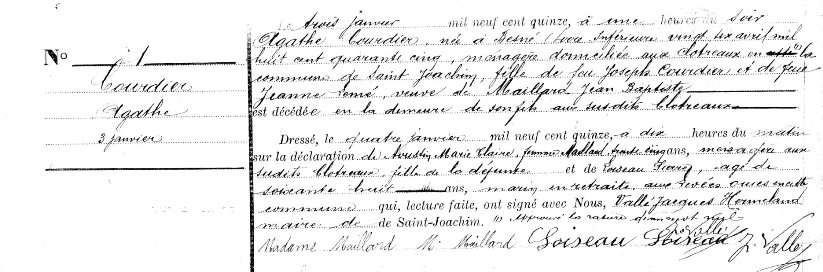 Nº 1
Courdier
Agathe
3 janvier
Le trois janvier mil neuf cent quinze, à une heures du soir
Agathe Courdier, née à Besné (Loire Inférieure) vingt six avril mil
huit cent quarante cinq, ménagère domiciliée aux Clotreaux en la
commune de Saint Joachim, fille de feu Joseph Courdier et de feue
Jeanne veuve de Maillard Jean Baptiste
est décédée en la demeure de son fils aux susdits Clotreaux
Dressé, le quatre janvier mil neuf cent quinze, à dix heures du matin
sur la déclaration de Marie femme Maillard trente cinq ans, aux
susdits Clotreaux, fille de la défunte et de Loiseau Pierre, âgé de
soixante huit ans, marin en retraite, aux
commune qui, lecture faite, ont signé avec Nous, Vallé Jacques
maire de de Saint-Joachim. Approuvé la rature d'un mot nul
Madame Maillard M. Maillard Loiseau J. Vallé